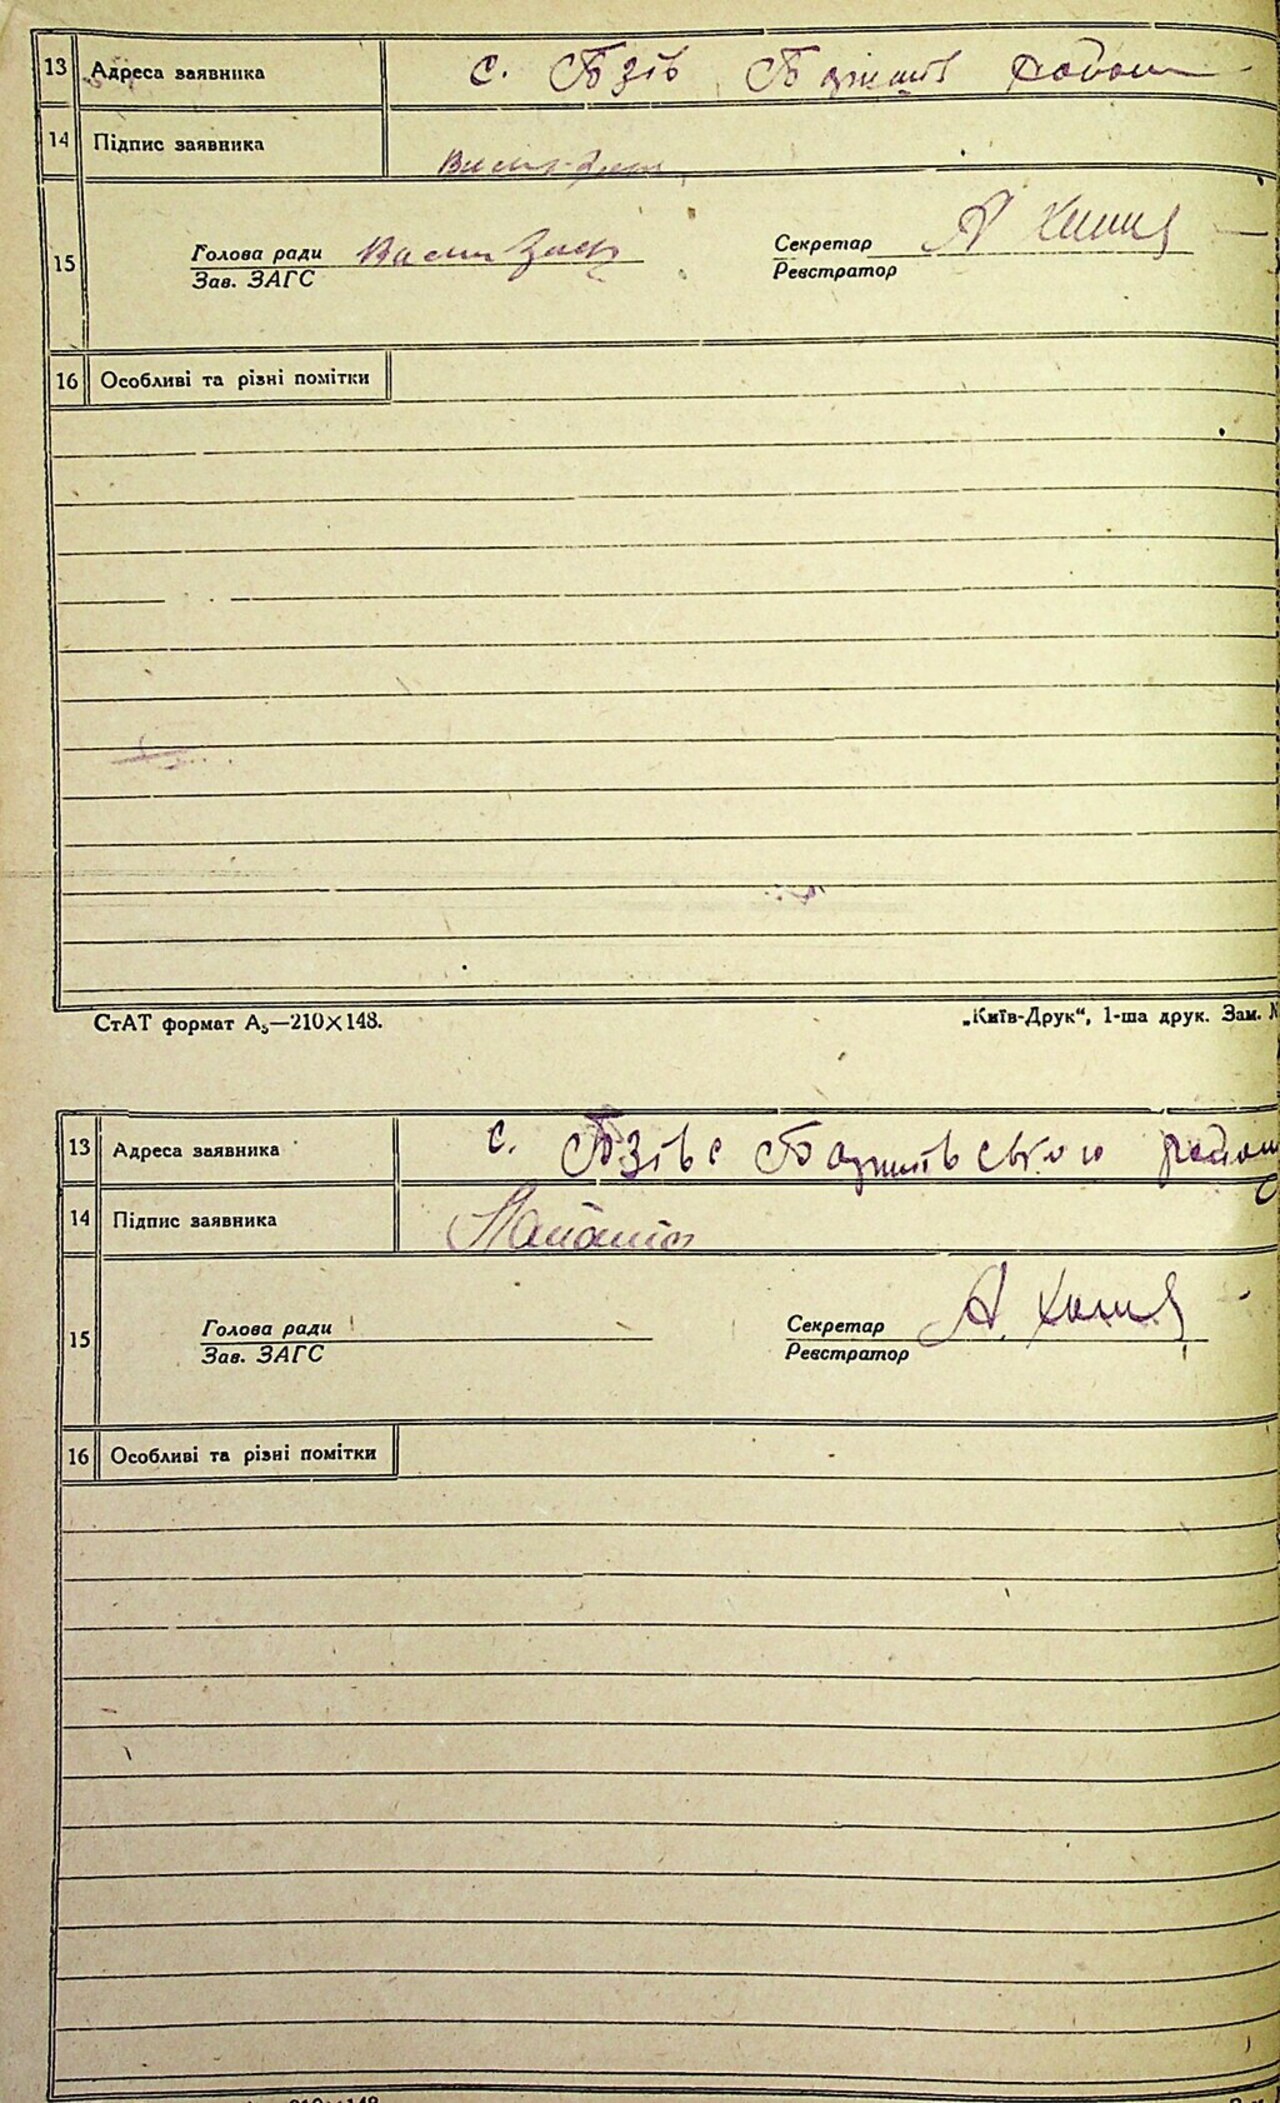 13 Адреса заявника с. Бзів Баришів район
14 Підпис заявника
15 Голова ради Секретар
Зав. ЗАГС Реєстратор
16 Особливі та різні помітки
СтАТ формат А₅—210×148. „Київ-Друк“, 1-ша друк. Зам.
13 Адреса заявника с. Бзів Баришівського району
14 Підпис заявника
15 Голова ради Секретар
Зав. ЗАГС Реєстратор
16 Особливі та різні помітки